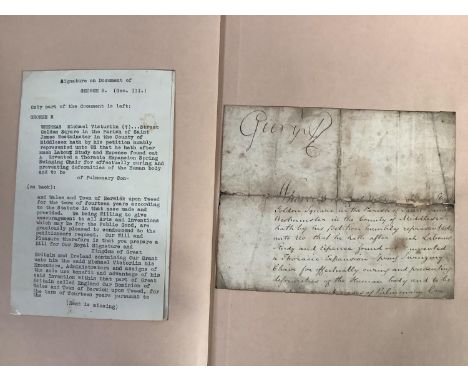 Signature on Document of
GEORGE R. (Geo. III.)
Only part of the document is left:
GEORGE R
WHEREAS Michael Victurtin (?)...Street
Golden Square in the Parish of Saint
James Westminster in the County of
Middlesex hath by his petition humbly
represented unto US that he hath after
much Labout Study and Expense found out
& invented a Thoracic Expansion Spring
Swinging Chair for effectually curing and
preventing deformities of the Human body
and to be
of Pulmonary Con-
(on back):
and Wales and Town of Berwick upon Tweed
for the term of fourteen years according
to the Statute in that case made and
provided. We being Willing to give
encouragement to all Arts and Inventions
which may be for the Public Good, are
graciously pleased to condescend to the
petitioners request. Our Will and
Pleasure therefore is that you prepare a
Bill for Our Royal Signature and
Kingdom of Great
Britain and Ireland containing Our Grant
unto him the said Michael Victurtin his
Executors, Administrators and assigns of
the sole use benefit and advantage of his
said Invention within that part of Great
Britain called England Our Dominion of
Wales and Town of Berwick upon Tweed, for
the term of fourteen years pursuant to
the
(Rest is missing)
George R
Whereas
Golden Square in the Parish of Saint
Westminster in the County of Middlesex
hath by his Petition humbly represented
unto US that he hath after much Labour
Study and Expense found invented
a Thoracic Expansion Spring Swinging
Chair for effectually curing and preventing
deformities of the Human body and to be
of Pulmonary Con